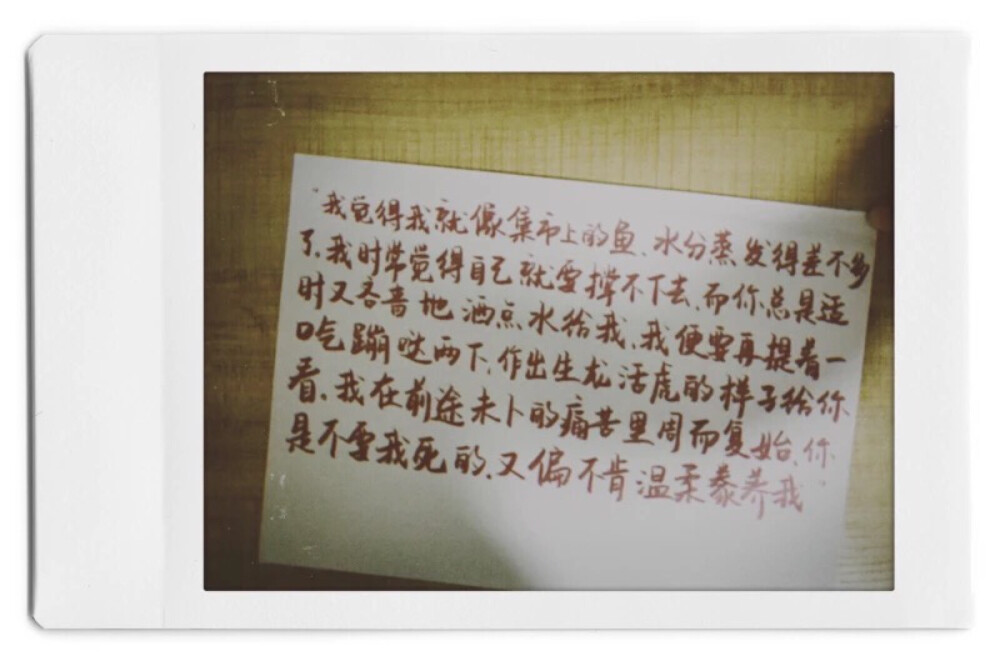 “我觉得我就像集市上的鱼、水分蒸发得差不多
了、我时常觉得自己就要撑不下去、而你总是适
时又吝啬地洒点水给我、我便要再提着一
口吃蹦哒两下、作出生龙活虎的样子给你
看、我在前途未卜的痛苦里周而复始、你
是不要我死的、又偏不肯温柔豢养我”